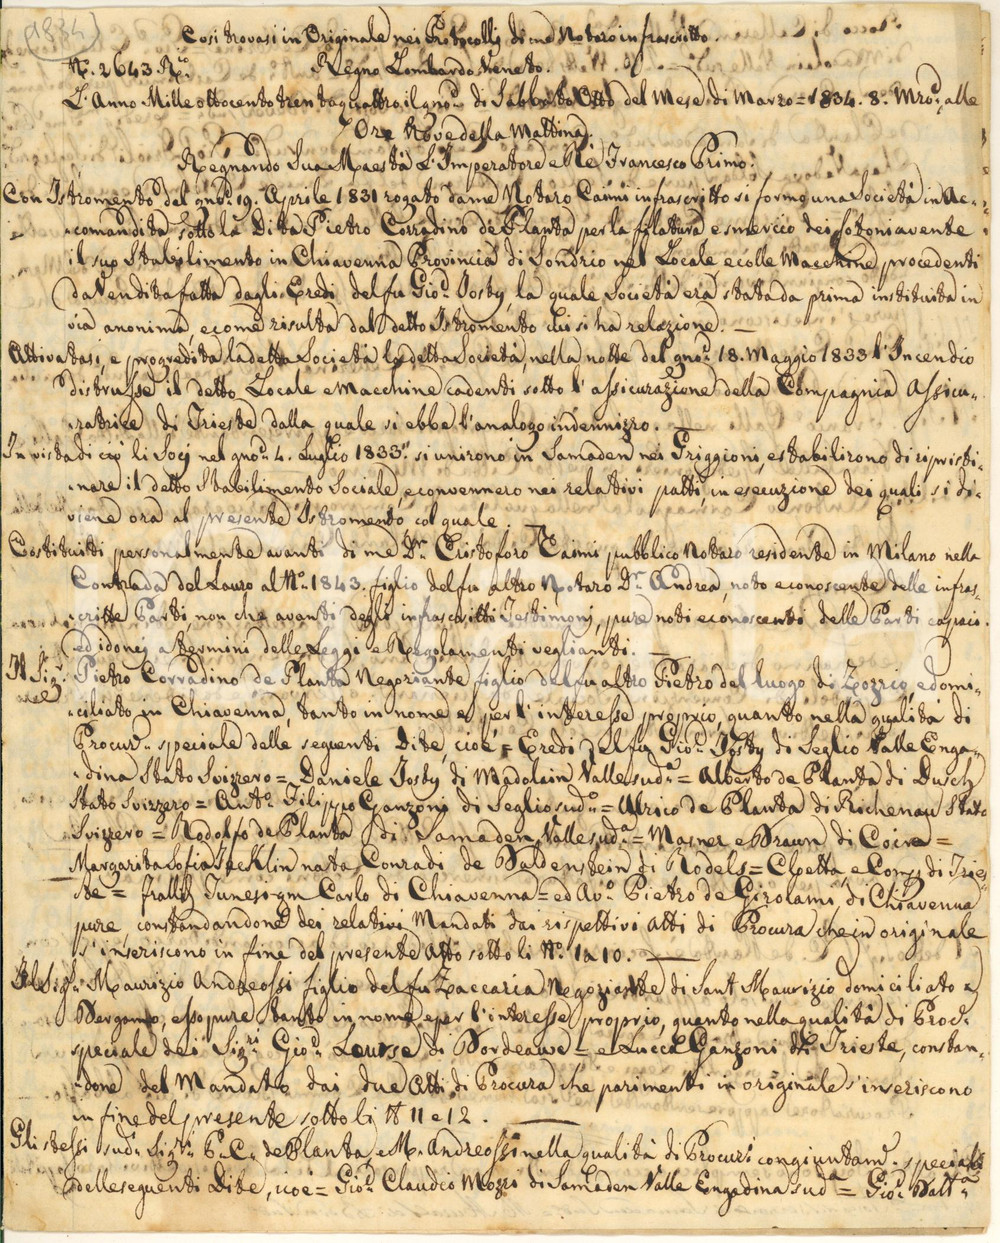 (1834)
Così trovasi in Originale nei Protocolli di me Notaro infrascritto.
N. 2643. R.o
Regno Lombardo Veneto.
L'Anno Mille ottocento trentaquattro, il gno. di Sabbato Otto del Mese di Marzo = 1834. 8. Mrzo. alle
Ore Nove della Mattina.
Regnando Sua Maestà L'Imperatore e Rè Francesco Primo.
Con Istromento del gno. 19. Aprile 1831 rogato da me Notaro Caimi infrascritto si formò una Società in Ac-
comandita sotto la Dita Pietro Corradino de Planta per la filatura e smercio dei Cotoni avente
il suo Stabilimento in Chiavenna Provincia di Sondrio nel Locale e colle Macchine procedenti
da Vendita fatta dagli Eredi del fu Gio. Josty, la quale Società era stata da prima instituita in
via anonima, e come risulta dal detto Istromento cui si ha relazione. —
Attivatasi, e progredita la detta Società la detta Società, nella notte del gno. 18. Maggio 1833 l'Incendio
distrusse il detto Locale e Macchine cadenti sotto l'assicurazione della Compagnia Assicu-
ratrice di Trieste dalla quale si ebbe l'analogo indennizzo. —
In vista di ciò li Socj nel gno. 4. Luglio 1833. si unirono in Samaden nei Griggioni, e stabilirono di ripristi-
nare il detto Stabilimento Sociale, e convennero nei relativi patti, in esecuzione dei quali si di-
viene ora al presente Istromento col quale. —
Costituiti personalmente avanti di me Dr. Cristoforo Caimi pubblico Notaro residente in Milano nella
Contrada del Lauro al No. 1843. figlio del fu altro Notaro Dr. Andrea, noto e conoscente delle infras-
critte Parti, non che avanti degli infrascritti Testimonj, pure noti e conoscenti delle Parti capaci
ed idonej a termini delle Leggi e Regolamenti veglianti. —
Il Sigr. Pietro Corradino de Planta Negoziante figlio del fu altro Pietro del luogo di Zozzio, e domi-
ciliato in Chiavenna, tanto in nome e per l'interesse proprio, quanto nella qualità di
Procur. speciale delle seguenti Dite, cioè = Eredi del fu Gio. Josty di Seglio Valle Enga-
dina Stato Svizzero = Daniele Josty, di Madolein Valle suda. = Alberto de Planta di Dusch
Stato Svizzero = Anto. Filippo Ganzoni di Seglio sudo. = Ulrico de Planta di Richenau Stato
Svizzero = Rodolfo de Planta di Samaden, Valle suda. = Masner e Braun di Coire =
Margarita Sofia Jecklin nata Conradi de Baldenstein di Rodels = Cloetta e Comp. di Trie-
ste = Fratelli Tunesi qm Carlo di Chiavenna = ed Avo. Pietro de Girolami di Chiavenna
pure constandandone dei relativi Mandati dai rispettivi Atti di Procura che in originale
s'inseriscono in fine del presente Atto sotto li No. 1 a 10. —
Il Sigr. Maurizio Andreossi figlio del fu Zaccaria Negoziante di Sant Maurizio domiciliato a
Bergamo, esso pure tanto in nome e per l'interesse proprio, quanto nella qualità di Proc.
speciale dei Sigri. Gio. Leursse di Bordeaux = e Lucca Ganzoni di Trieste, constan-
done del Mandato dai due Atti di Procura che parimenti in originale s'inseriscono
in fine del presente sotto li N 11 e 12. —
Gli stessi sudi. Sigri. P. C. de Planta, e M. Andreossi nella qualità di Procuri congiuntame. speciali
delle seguenti Dite, cioè = Gio. Claudio Mozzi di Samaden Valle Engadina suda. = Gio. Batta.